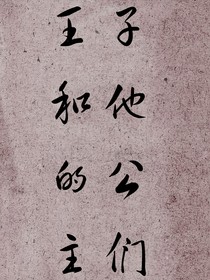 王子
和他
的公
主们